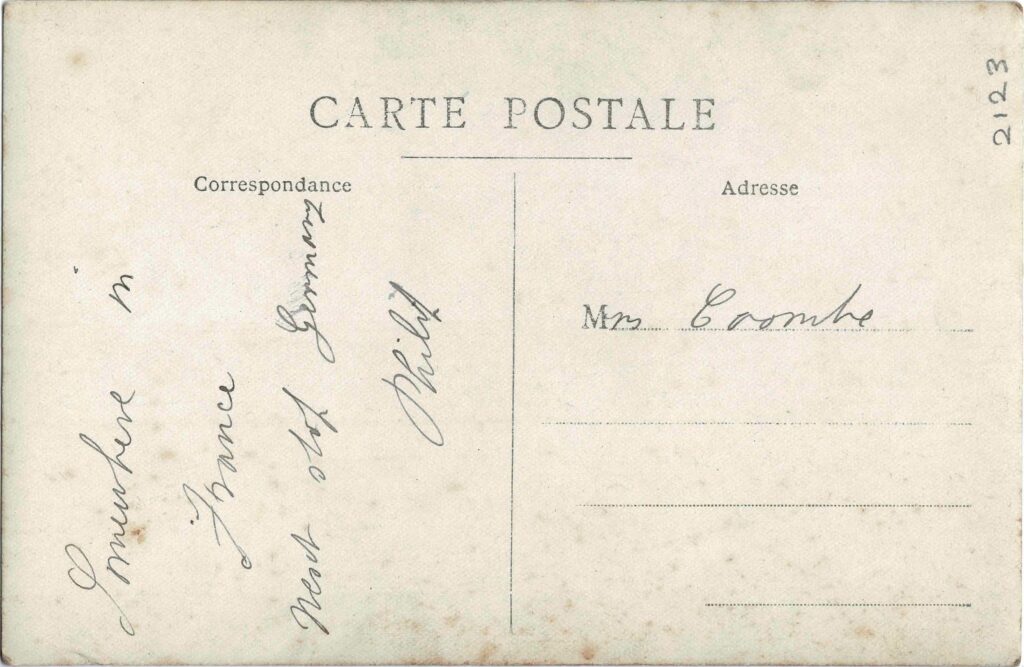 CARTE POSTALE
2123
Correspondance
Somewhere in
France
Next stop Germany
Philip
Adresse
Mrs Coombe